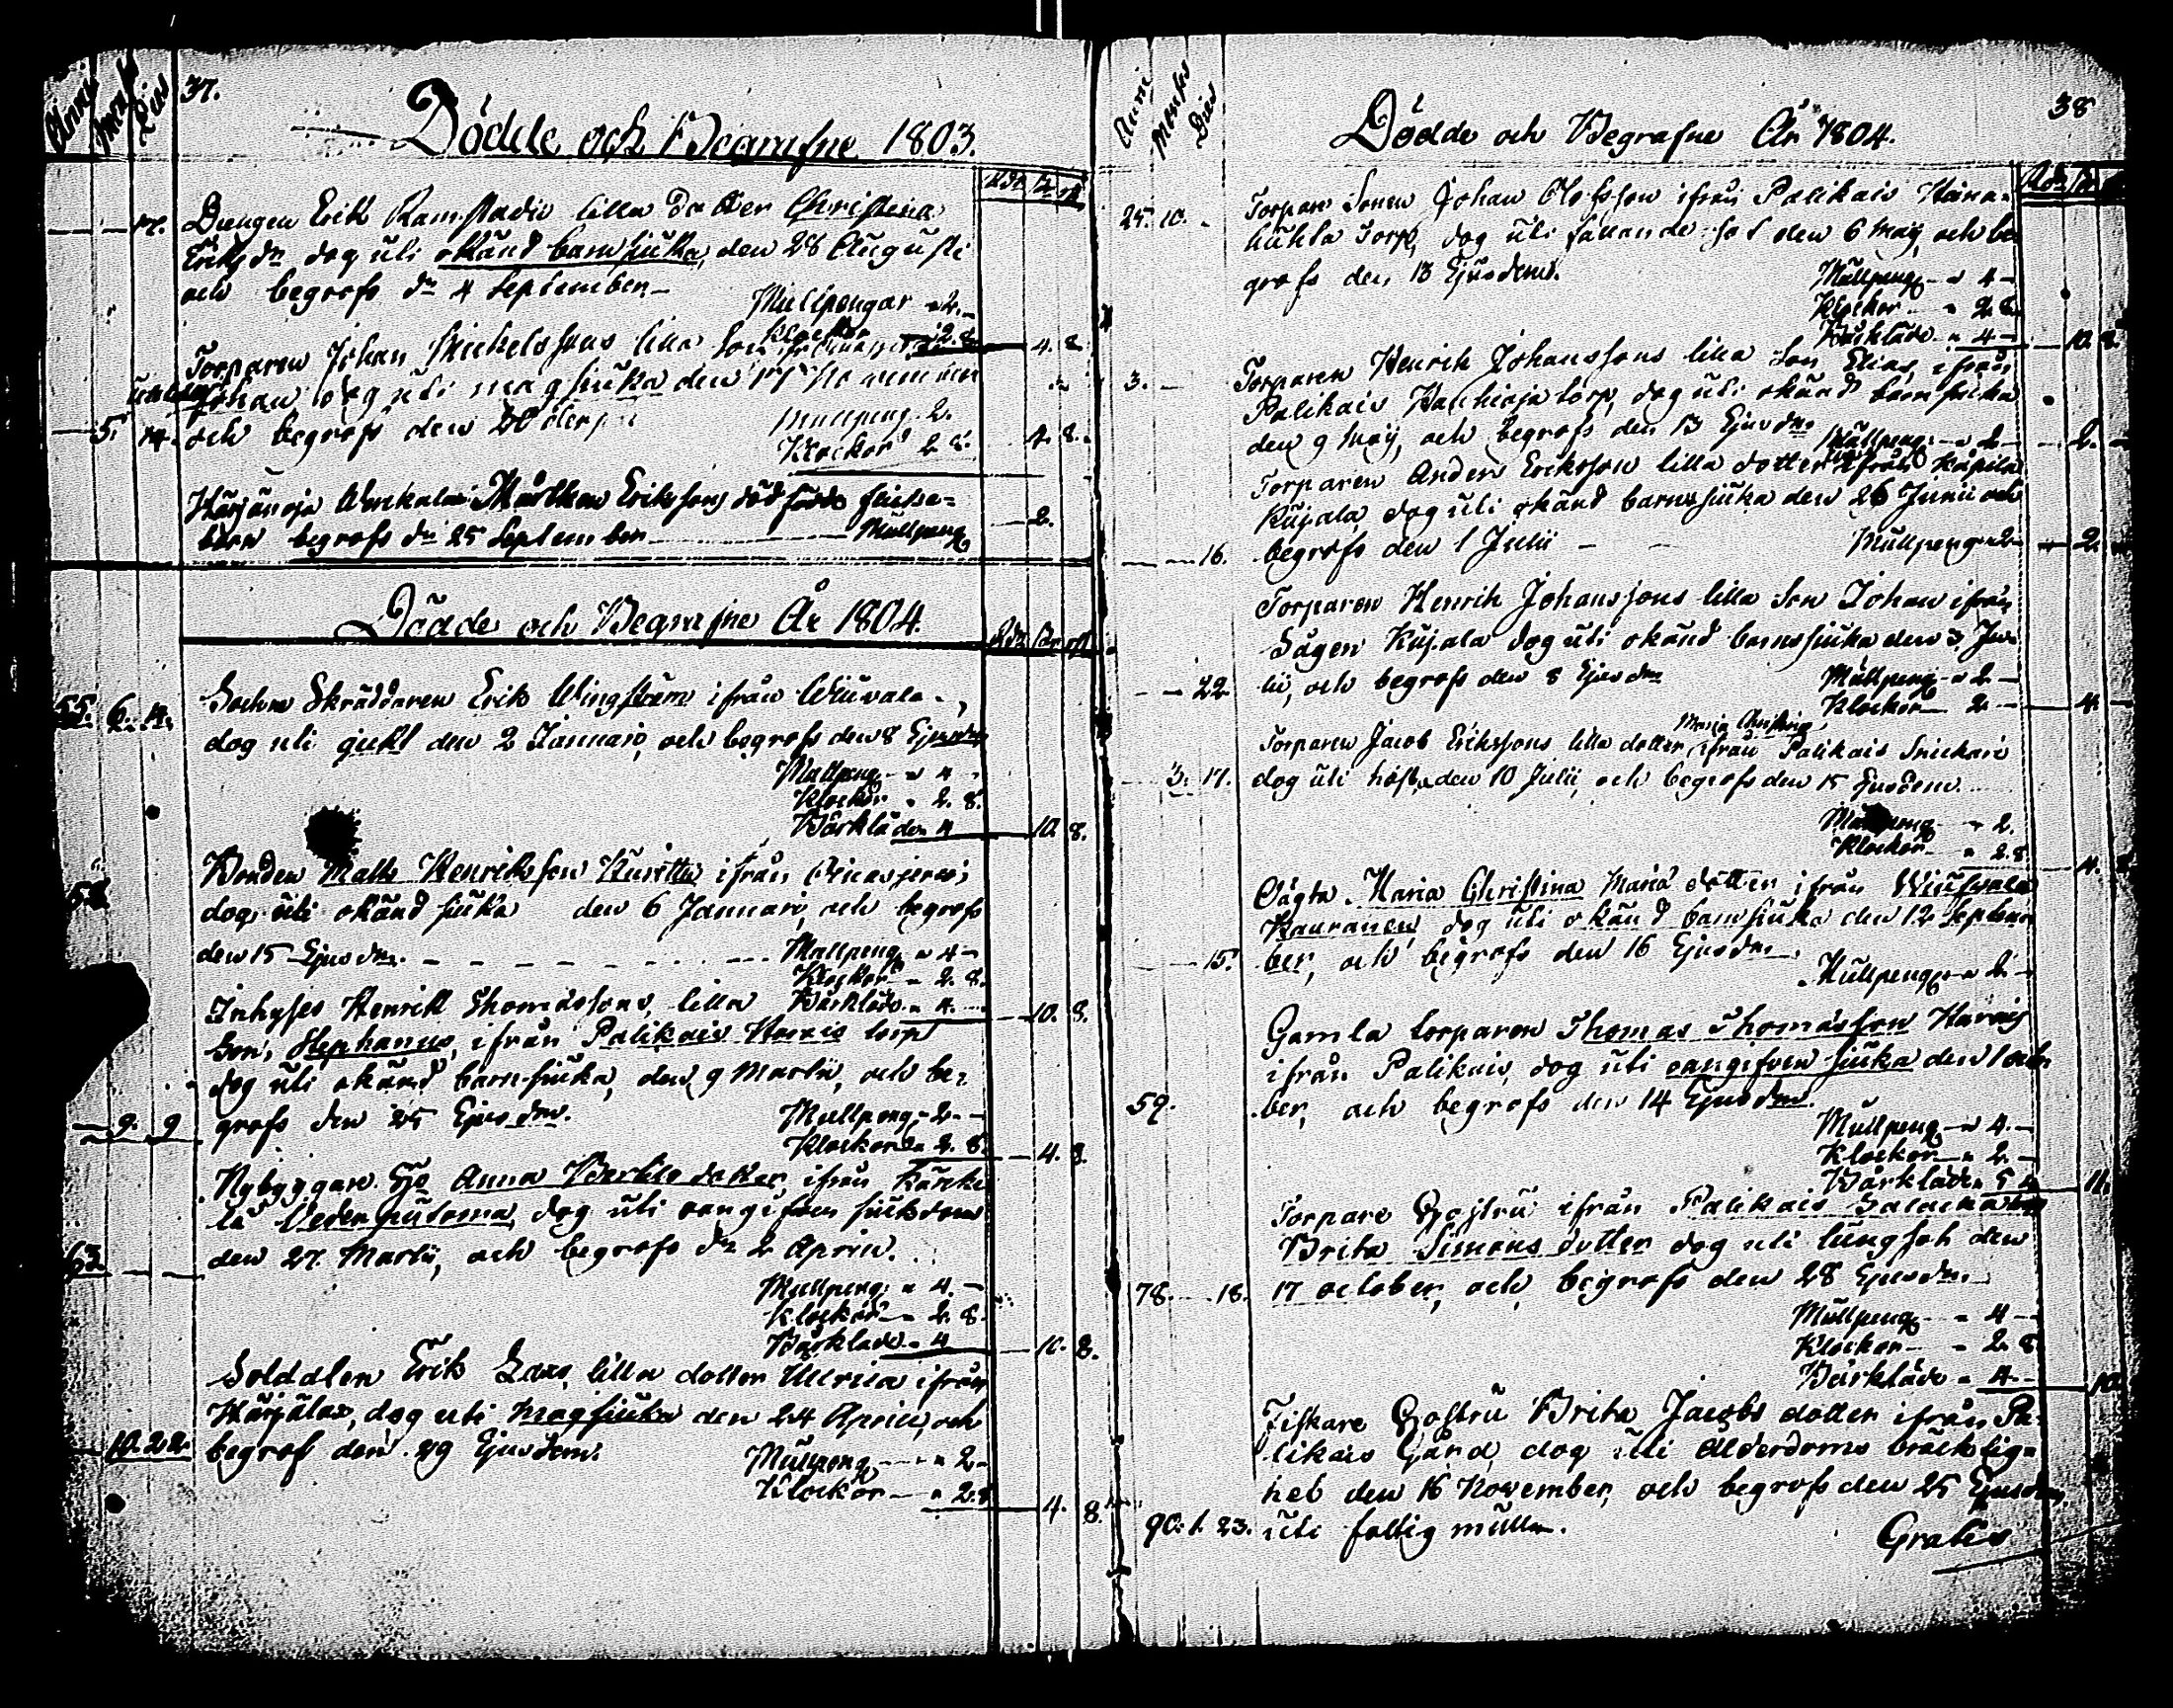 Anni Mens Dies
37.
Dödde och Begrafne 1803.
Drengen Erik Ramstadii lilla Dotter Christina
Eriks dr dog uti okänd barnsjuka, den 28 Augusti
och begrofs dn 4 September.
Mullpengar 2.
Klockor 2. 8.
4. 8.
Torparen Johan Mickelssons lilla Son
Johan dog uti magsjuka den
och begrofs den 20
Mullpeng. 2.
5. 14.
Klockor 2. 8.
4. 8.
Erikssons dödfödde
barn begrofs dn 25 September
Mullpeng
2.
Dödde och Begrafne År 1804.
Sochne Skräddaren Erik Wingström ifrån
55. 6.
dog uti gickt den 2 Januarii, och begrofs den 8 Ejusdm
Mullpeng 4
Klockor 2. 8.
Bårkläde 4
10. 8.
Bonden Matts Henriksson ifrån
58
dog uti okänd sjuka den 6 Januarii, och begrofs
den 15 Ejusdm.
Mullpeng 4
Klockor 2. 8.
Inhyses Henrik Thomassons, lilla
Bårkläde 4.
10. 8.
Son, Stephanus, ifrån Palikais torp
dog uti okänd barnsjuka, den 9 Martii, och be-
9. 9
grofs den 25 Ejusdm.
Mullpeng 2.
Klockor 2. 8.
4. 8.
Nybyggare Anna Bertils dotter ifrån
dog uti oangifven sjukdom
den 27. Martii, och begrofs dn 2 Aprill.
63
Mullpeng 4.
Klockor 2. 8.
Bårkläde 4
10. 8.
Soldaten Erik lilla dotter Ulrica ifrån
dog uti magsjuka den 24 Aprill, och
10. 22.
begrof den 29 Ejusdem.
Mullpeng 2
Klockor 2. 8
4. 8.
Anni Menses Dies
38
Dödde och Begrafne År 1804.
25. 10.
Torpare Sonen Johan Olofsson ifrån Palikais
Torp, dog uti fallande sot den 6 Maij, och be
grofs den 13 Ejusdem.
Mullpeng 4
Klockor 2. 8.
Bårkläde 4
10. 8.
Torparen Henrik Johanssons lilla Son Elias, ifrån
3.
Palikais torp, dog uti okänd barnsjuka
den 9 Maij, och begrofs den 13 Ejusdm
Mullpeng 2
2.
Torparen Anders Erikssons lilla dotter ifrån
Kujala, dog uti okänd barnsjuka den 26 Junii och
16.
begrofs den 1 Julii
Mullpeng 2
2.
Torparen Henrik Johanssons lilla Son Johan ifrån
Sågen Kujala dog uti okänd barnsjuka den 3 Ju-
22
lii, och begrofs den 8 Ejusdm
Mullpeng 2
Klockor 2.
4.
Maria Christina
Torparen Jacob Erikssons lilla dotter ifrån Palikais Snickari
3. 17.
dog uti hosta den 10 Julii, och begrofs den 15 Ejusdem.
Mullpeng 2.
Klockor 2. 8
4. 8
Oägta Maria Christina Maria dotter ifrån
dog uti okänd barnsjuka den 12 Septem
15.
ber, och begrofs den 16 Ejusdm.
Mullpeng 2
Gamla torparen Thomas Thomasson
ifrån Palikais, dog uti oangifven sjuka den 1 octo
59.
ber, och begrofs den 14 Ejusdm.
Mullpeng 4.
Klockor 2.
Bårkläde
11.
Torpare ifrån Palikais
Brita Simons dotter dog uti lungsot den
78. 18.
17 october, och begrofs den 28 Ejusdm.
Mullpeng 4
Klockor 2. 8
Bårkläde 4
10.
Fiskare Brita Jacobs dotter ifrån Pa-
likais Gård, dog uti ålderdoms bräcklig-
het den 16 November, och begrofs den 25 Ejusdm,
90. 1. 23.
uti fattig mullen.
Gratis